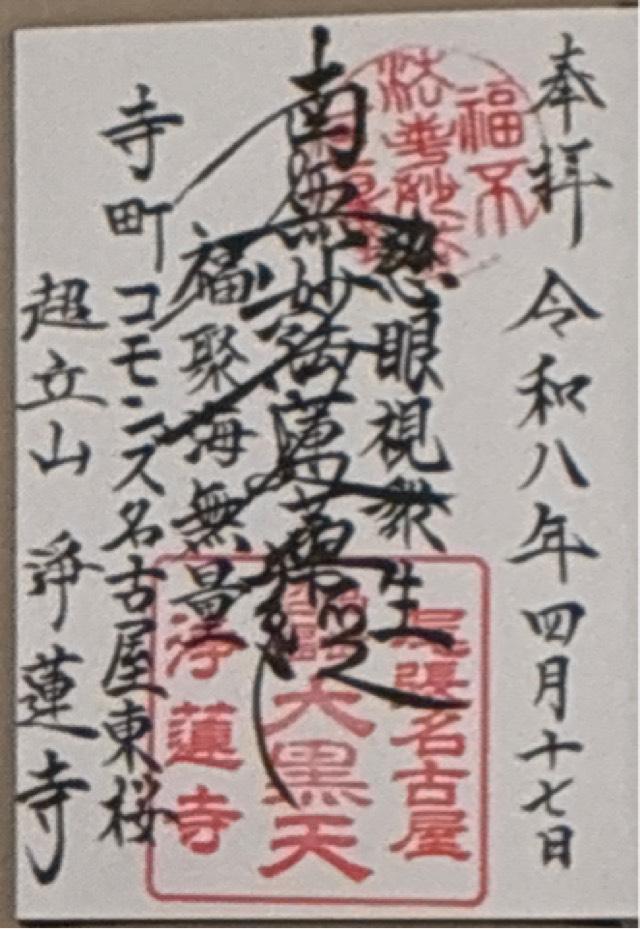 奉拝 令和八年四月十七日
慈眼視衆生
南無妙法蓮華経
福聚海無量
寺町コモンズ名古屋東桜
超立山 浄蓮寺
尾張名古屋
大黒天
浄蓮寺